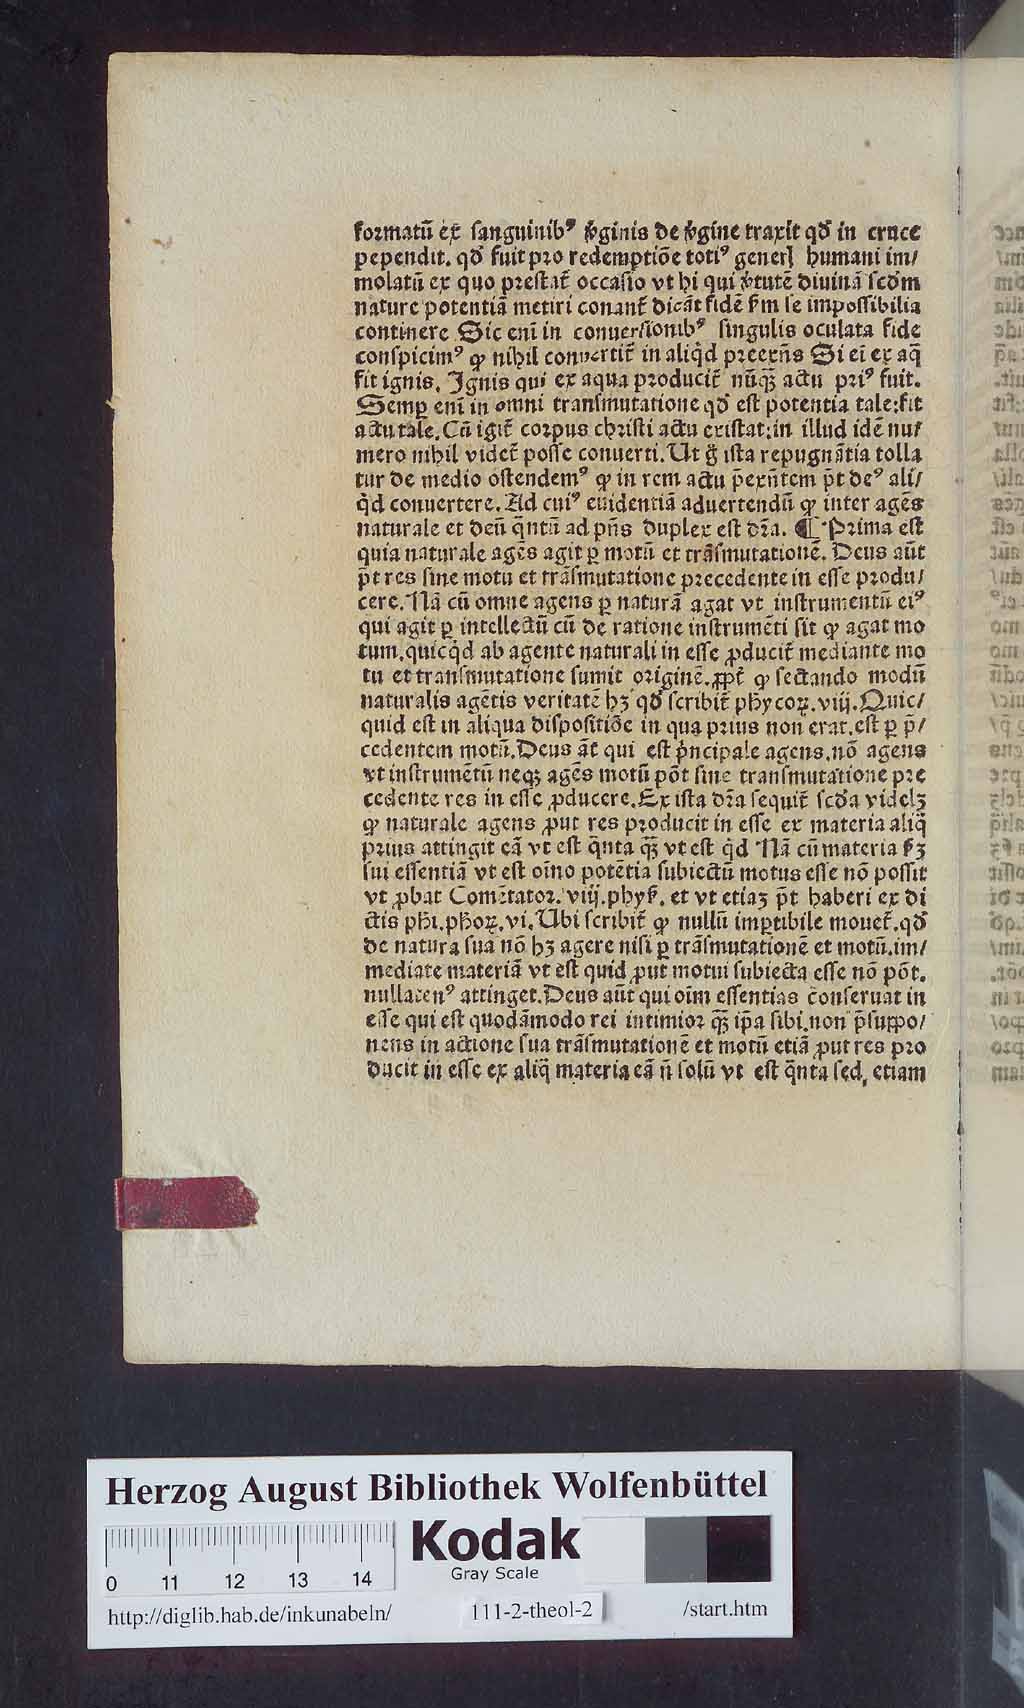 formatū ex sanguinibꝰ v̓ginis de v̓gine traxit qđ in cruce
pependit. qđ fuit pro redemptiōe totiꝰ generꝭ humani im/
molatū ex quo prestat̄ occasio vt hi qui v̓tutē diuinā scdm
nature potentiā metiri conant̄ dicāt fidē km se impossibilia
continere Sic eni in conuersionibꝰ singulis oculata fide
conspicimꝰ ꝙ nihil conuertit̄ in aliq̇d preexn̄s Si ei ex aq̄
fit ignis. Ignis qui ex aqua producit̄ nūqꝫ actu priꝰ fuit.
Semꝑ eni in omni transmutatione qđ est potentia tale:fit
actu tale. Cū igit̄ corpus christi actu existat:in illud idē nu/
mero nihil videt̄ posse conuerti. Ut g̊ ista repugnātia tolla
tur de medio ostendemꝰ ꝙ in rem actu p̄exn̄tem p̄t deꝰ ali/
q̇d conuertere. Ad cuiꝰ euidentiā aduertendū ꝙ inter agēs
naturale et deū q̄ntū ad pn̄s duplex est dr̄a. ¶ Prima est
quia naturale agēs agit ꝑ motū et trāsmutationē. Deus aūt
p̄t res sine motu et trāsmutatione precedente in esse produ/
cere. Nā cū omne agens ꝑ naturā agat vt instrumentū eiꝰ
qui agit ꝑ intellectū cū de ratione instrumēti sit ꝙ agat mo
tum. quicq̇d ab agente naturali in esse ꝓducit̄ mediante mo
tu et transmutatione sumit originē. ꝓpt̄ ꝙ sectando modū
naturalis agētis veritatē hꝫ qđ scribit̄ phycoꝝ. viij. Quic/
quid est in aliqua dispositiōe in qua prius non erat. est ꝑ p̄/
cedentem motū. Deus āt qui est p̓ncipale agens. nō agens
vt instrumētū neqꝫ agēs motū pōt sine transmutatione pre
cedente res in esse ꝓducere. Ex ista dr̄a sequit̄ scđa videlꝫ
ꝙ naturale agens ꝓut res producit in esse ex materia aliq̄
prius attingit eā vt est q̄nta qꝫ vt est q̇d Nā cū materia kꝫ
sui essentiā vt est oīno potētia subiectū motus esse nō possit
vt ꝓbat Comētator. viij. phyk. et vt etiaꝫ p̄t haberi ex di
ctis phi. phoꝝ. vi. Ubi scribit̄ ꝙ nullū impꝑtibile mouet̄. qđ
de natura sua nō hꝫ agere nisi ꝑ trāsmutationē et motū. im/
mediate materiā vt est quid ꝓut motui subiecta esse nō pōt.
nullatenꝰ attinget. Deus aūt qui oīm essentias cōseruat in
esse qui est quodāmodo rei intimior qꝫ ip̄a sibi. non p̄suppo/
nens in actione sua trāsmutationē et motū etiā ꝓut res pro
ducit in esse ex aliq̄ materia eā n̄ solū vt est q̄nta sed, etiam
Herzog August Bibliothek Wolfenbüttel
Kodak
Gray Scale
0 11 12 13 14
http://diglib.hab.de/inkunabeln/ 111-2-theol-2 /start.htm